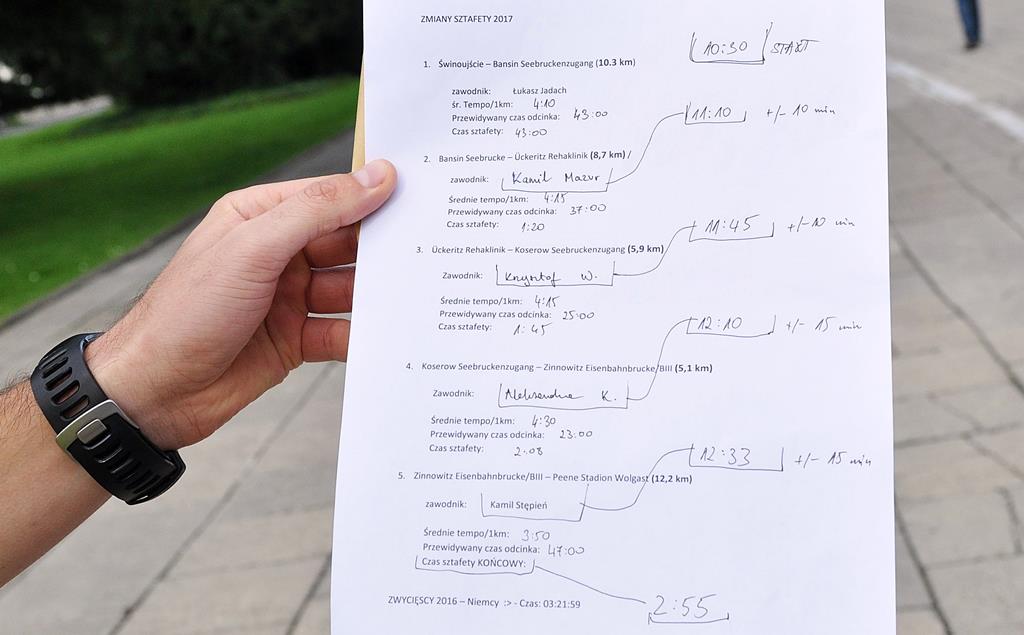 ZMIANY SZTAFETY 2017
10:30 START
1. Świnoujście – Bansin Seebruckenzugang (10.3 km)
zawodnik: Łukasz Jadach
śr. Tempo/1km: 4:10
11:10 +/- 10 min
Przewidywany czas odcinka: 43:00
Czas sztafety: 43:00
2. Bansin Seebrucke – Ückeritz Rehaklinik (8,7 km) /
zawodnik: Kamil Mazur
Średnie tempo/1km: 4:15
Przewidywany czas odcinka: 37:00
Czas sztafety: 1:20
11:45 +/- 10 min
3. Ückeritz Rehaklinik – Koserow Seebruckenzugang (5,9 km)
Zawodnik: Krzysztof W.
Średnie tempo/1km: 4:15
Przewidywany czas odcinka: 25:00
Czas sztafety: 1:45
12:10 +/- 15 min
4. Koserow Seebruckenzugang – Zinnowitz Eisenbahnbrucke/BIII (5,1 km)
Zawodnik: Aleksandra K.
Średnie tempo/1km: 4:30
Przewidywany czas odcinka: 23:00
Czas sztafety: 2.08
12:33 +/- 15 min
5. Zinnowitz Eisenbahnbrucke/BIII – Peene Stadion Wolgast (12,2 km)
zawodnik: Kamil Stępień
Średnie tempo/1km: 3:50
Przewidywany czas odcinka: 47:00
Czas sztafety KOŃCOWY:
2:55
ZWYCIĘSCY 2016 – Niemcy :> - Czas: 03:21:59